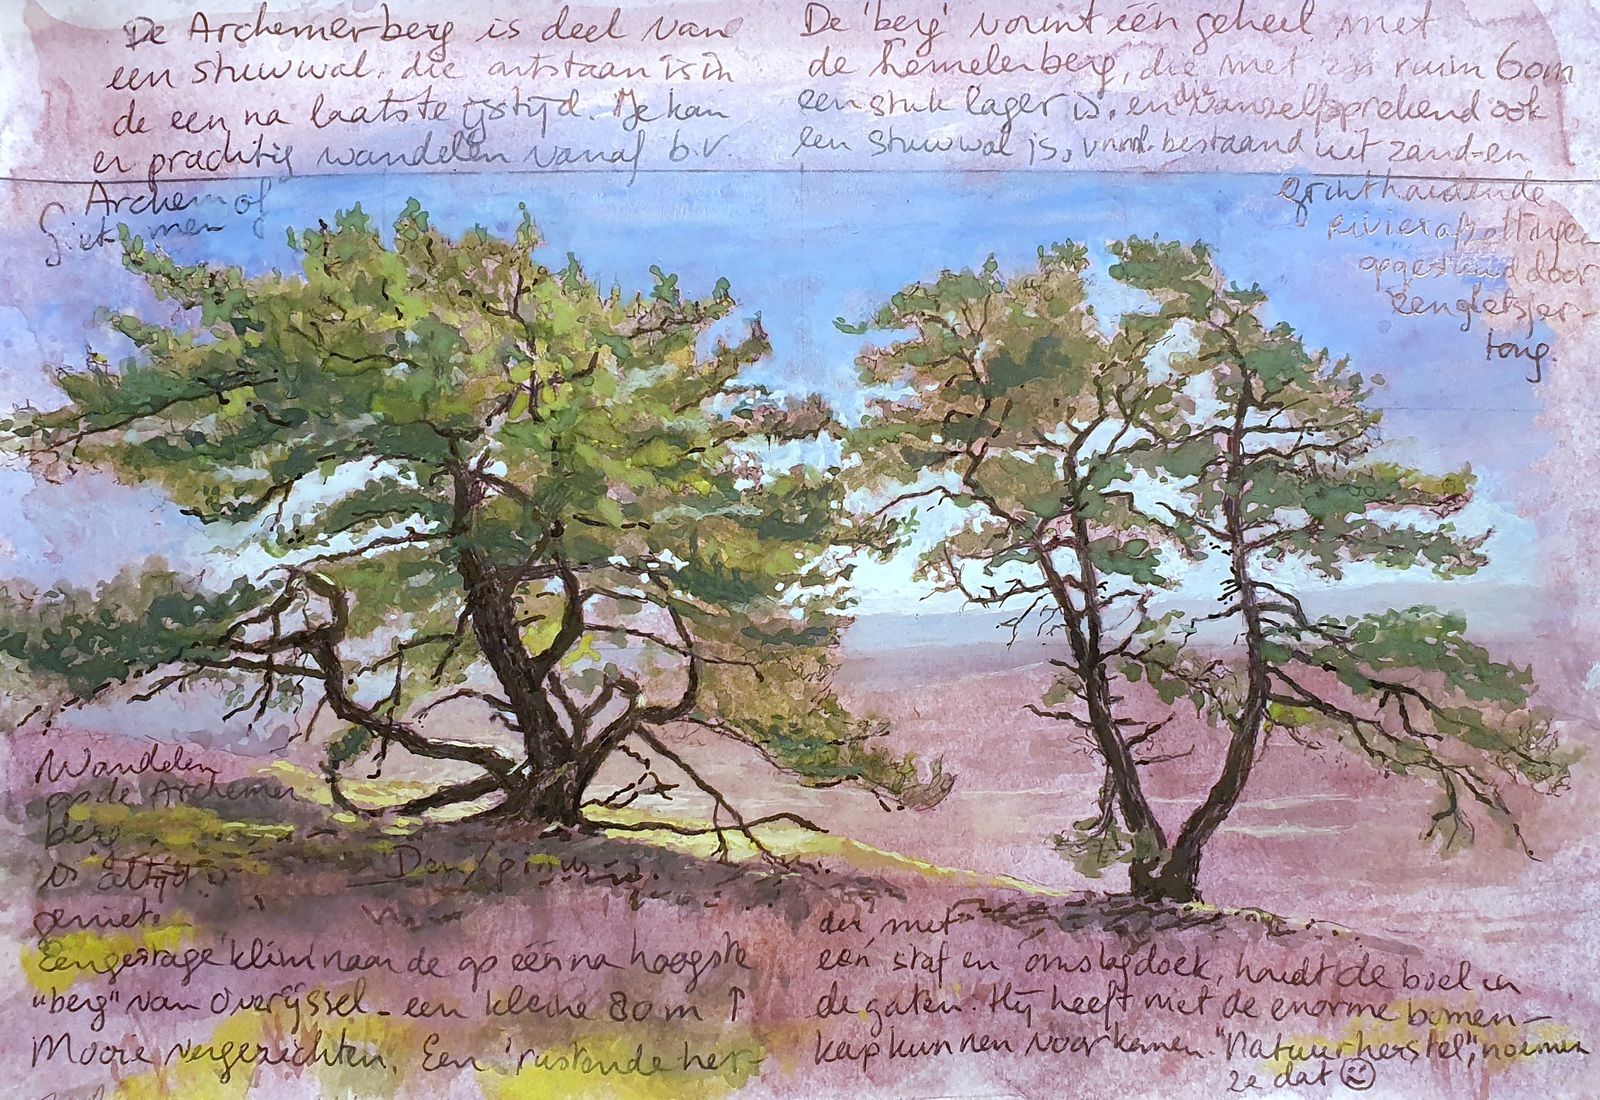 De Archemerberg is deel van
een stuwwal, die ontstaan is in
de een na laatste ijstijd. Je kan
er prachtig wandelen vanaf b.v.
Archem of
Giethmen
De 'berg' vormt één geheel met
de Lemelerberg, die met zn ruim 60m
een stuk lager is, en die vanzelfsprekend ook
een stuwwal is, vnml. bestaand uit zand-en
grinthoudende
rivierafzettingen
opgestuwd door
een gletsjer-
tong.
Wandelen
op de Archemer
berg
is altijd
geniete
Den/pinus
Een gestage 'klim' naar de op één na hoogste
"berg" van Overijssel - een kleine 80m ↑
Mooie vergezichten. Een 'rustende her-
der met
een staf en omslagdoek, houdt de boel in
de gaten. Hij heeft niet de enorme bomen-
kap kunnen voorkomen. "Natuurherstel", noemen
ze dat ☺